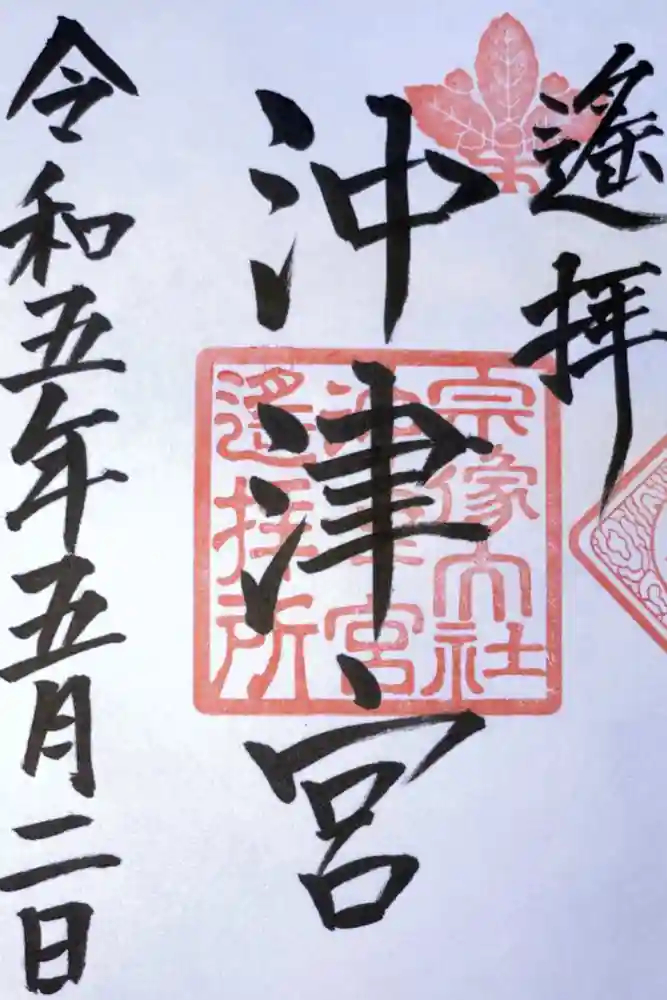 遙拝
沖津宮
宗像大社
沖津宮
遙拝所
令和五年五月二日